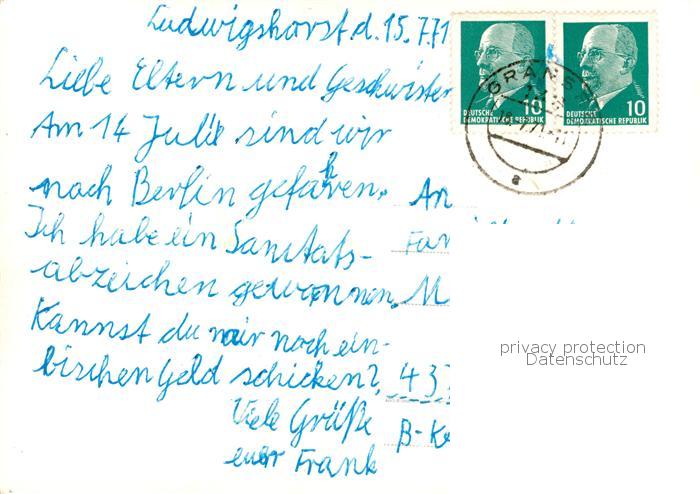 Ludwigshorst d. 15.7.71
Liebe Eltern und Geschwister
Am 14 Juli sind wir
nach Berlin gefahren.
Ich habe ein Sanitäts-
abzeichen gewonnen.
Kannst du mir noch ein-
bischen Geld schicken?
Viele Grüße
euer Frank
An
Fam
M
437
B-Kö
10
DEUTSCHE
DEMOKRATISCHE REPUBLIK
10
DEUTSCHE
DEMOKRATISCHE REPUBLIK
GRANS
a
privacy protection
Datenschutz